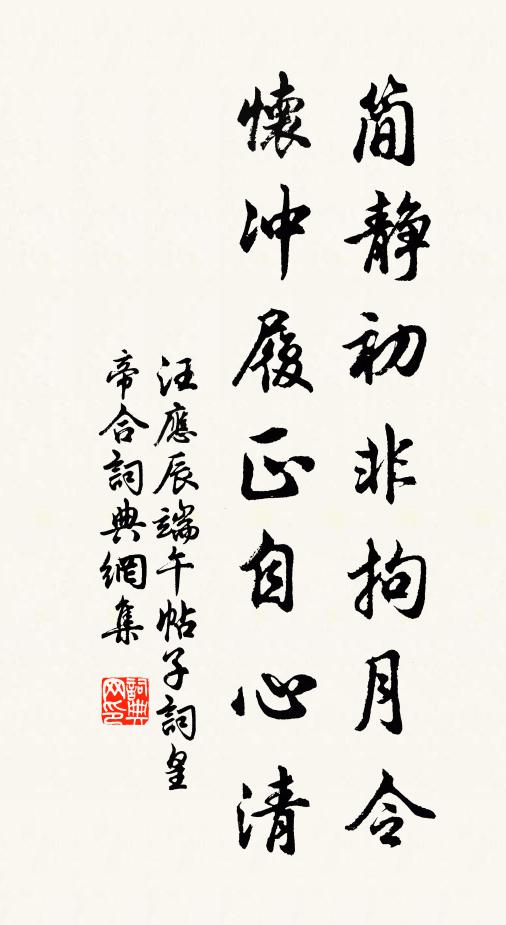 简静初非拘月令
懷冲履正自心清
汪應辰端午帖子詞皇
帝合詞典網集
詞典
网印